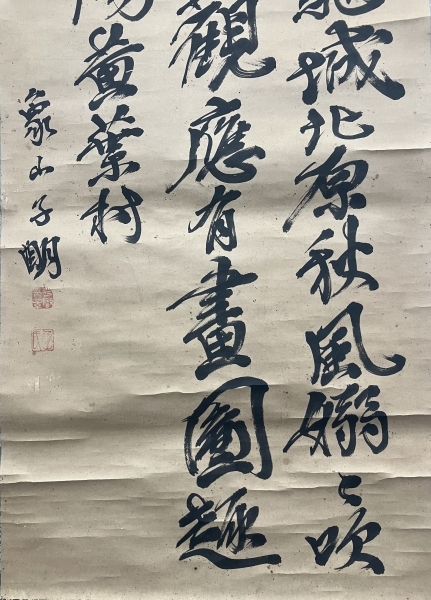 城北原秋風嫋々吹
觀應有畫圖趣
陽黄葉村
象山子明